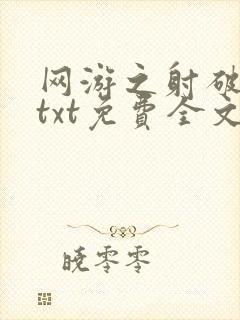 网游之射破
txt免費全文
晓零零